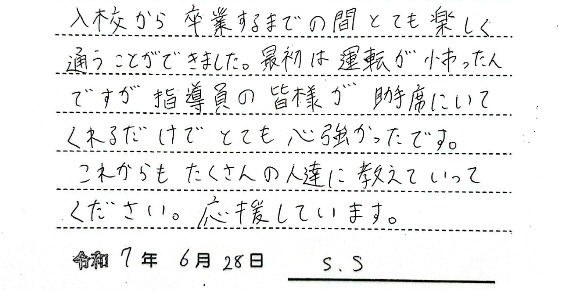 入校から卒業するまでの間とても楽しく
通うことができました。最初は運転が怖かったん
ですが指導員の皆様が助手席にいて
くれるだけでとても心強かったです。
これからもたくさんの人達に教えていって
ください。応援しています。
令和7年6月28日 S.S